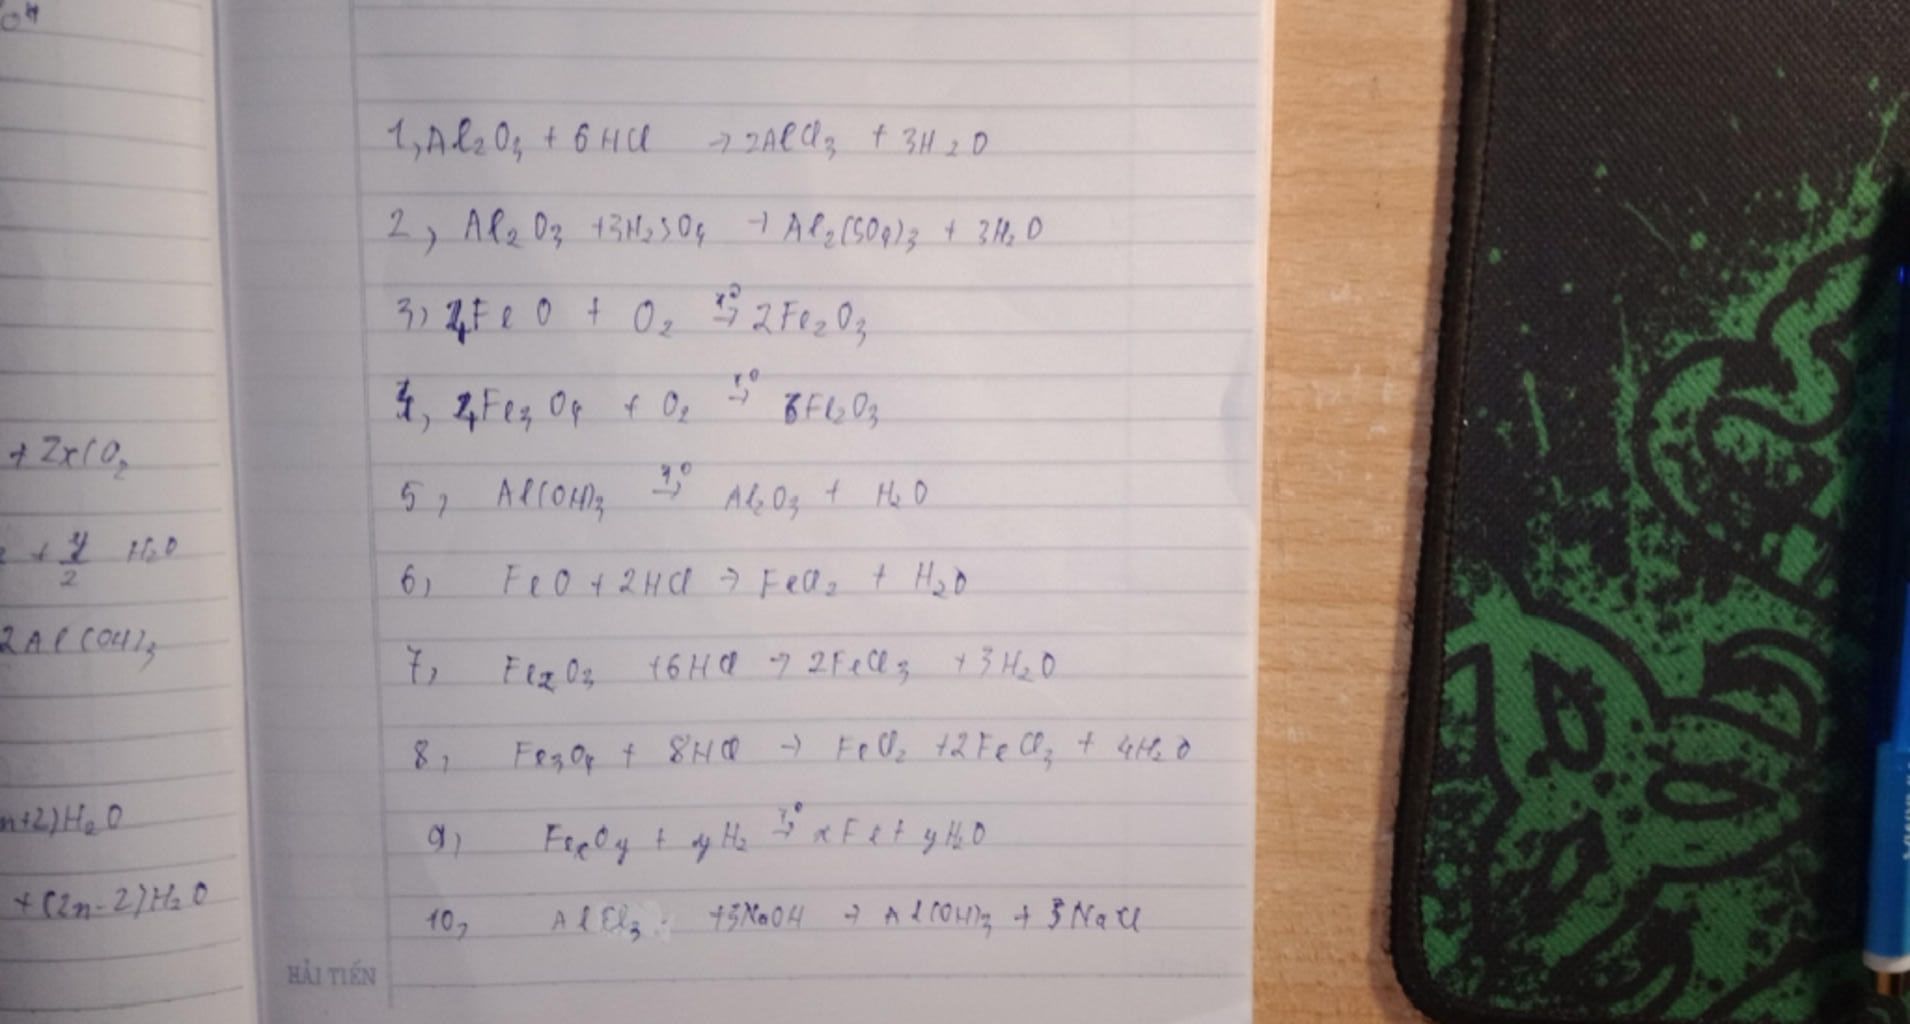 04
+ 2xCO2
+ y/2 H2O
2Al(OH)3
n+2)H2O
+(2n-2)H2O
1, Al2O3 + 6HCl → 2AlCl3 + 3H2O
2, Al2O3 + 3H2SO4 → Al2(SO4)3 + 3H2O
3, 4FeO + O2 t°→ 2Fe2O3
4, 4Fe3O4 + O2 t°→ 6Fe2O3
5, Al(OH)3 t°→ Al2O3 + H2O
6, FeO + 2HCl → FeCl2 + H2O
7, Fe2O3 + 6HCl → 2FeCl3 + 3H2O
8, Fe3O4 + 8HCl → FeCl2 + 2FeCl3 + 4H2O
9, FexOy + yH2 t°→ xFe + yH2O
10, AlCl3 + 3NaOH → Al(OH)3 + 3NaCl
HẢI TIẾN